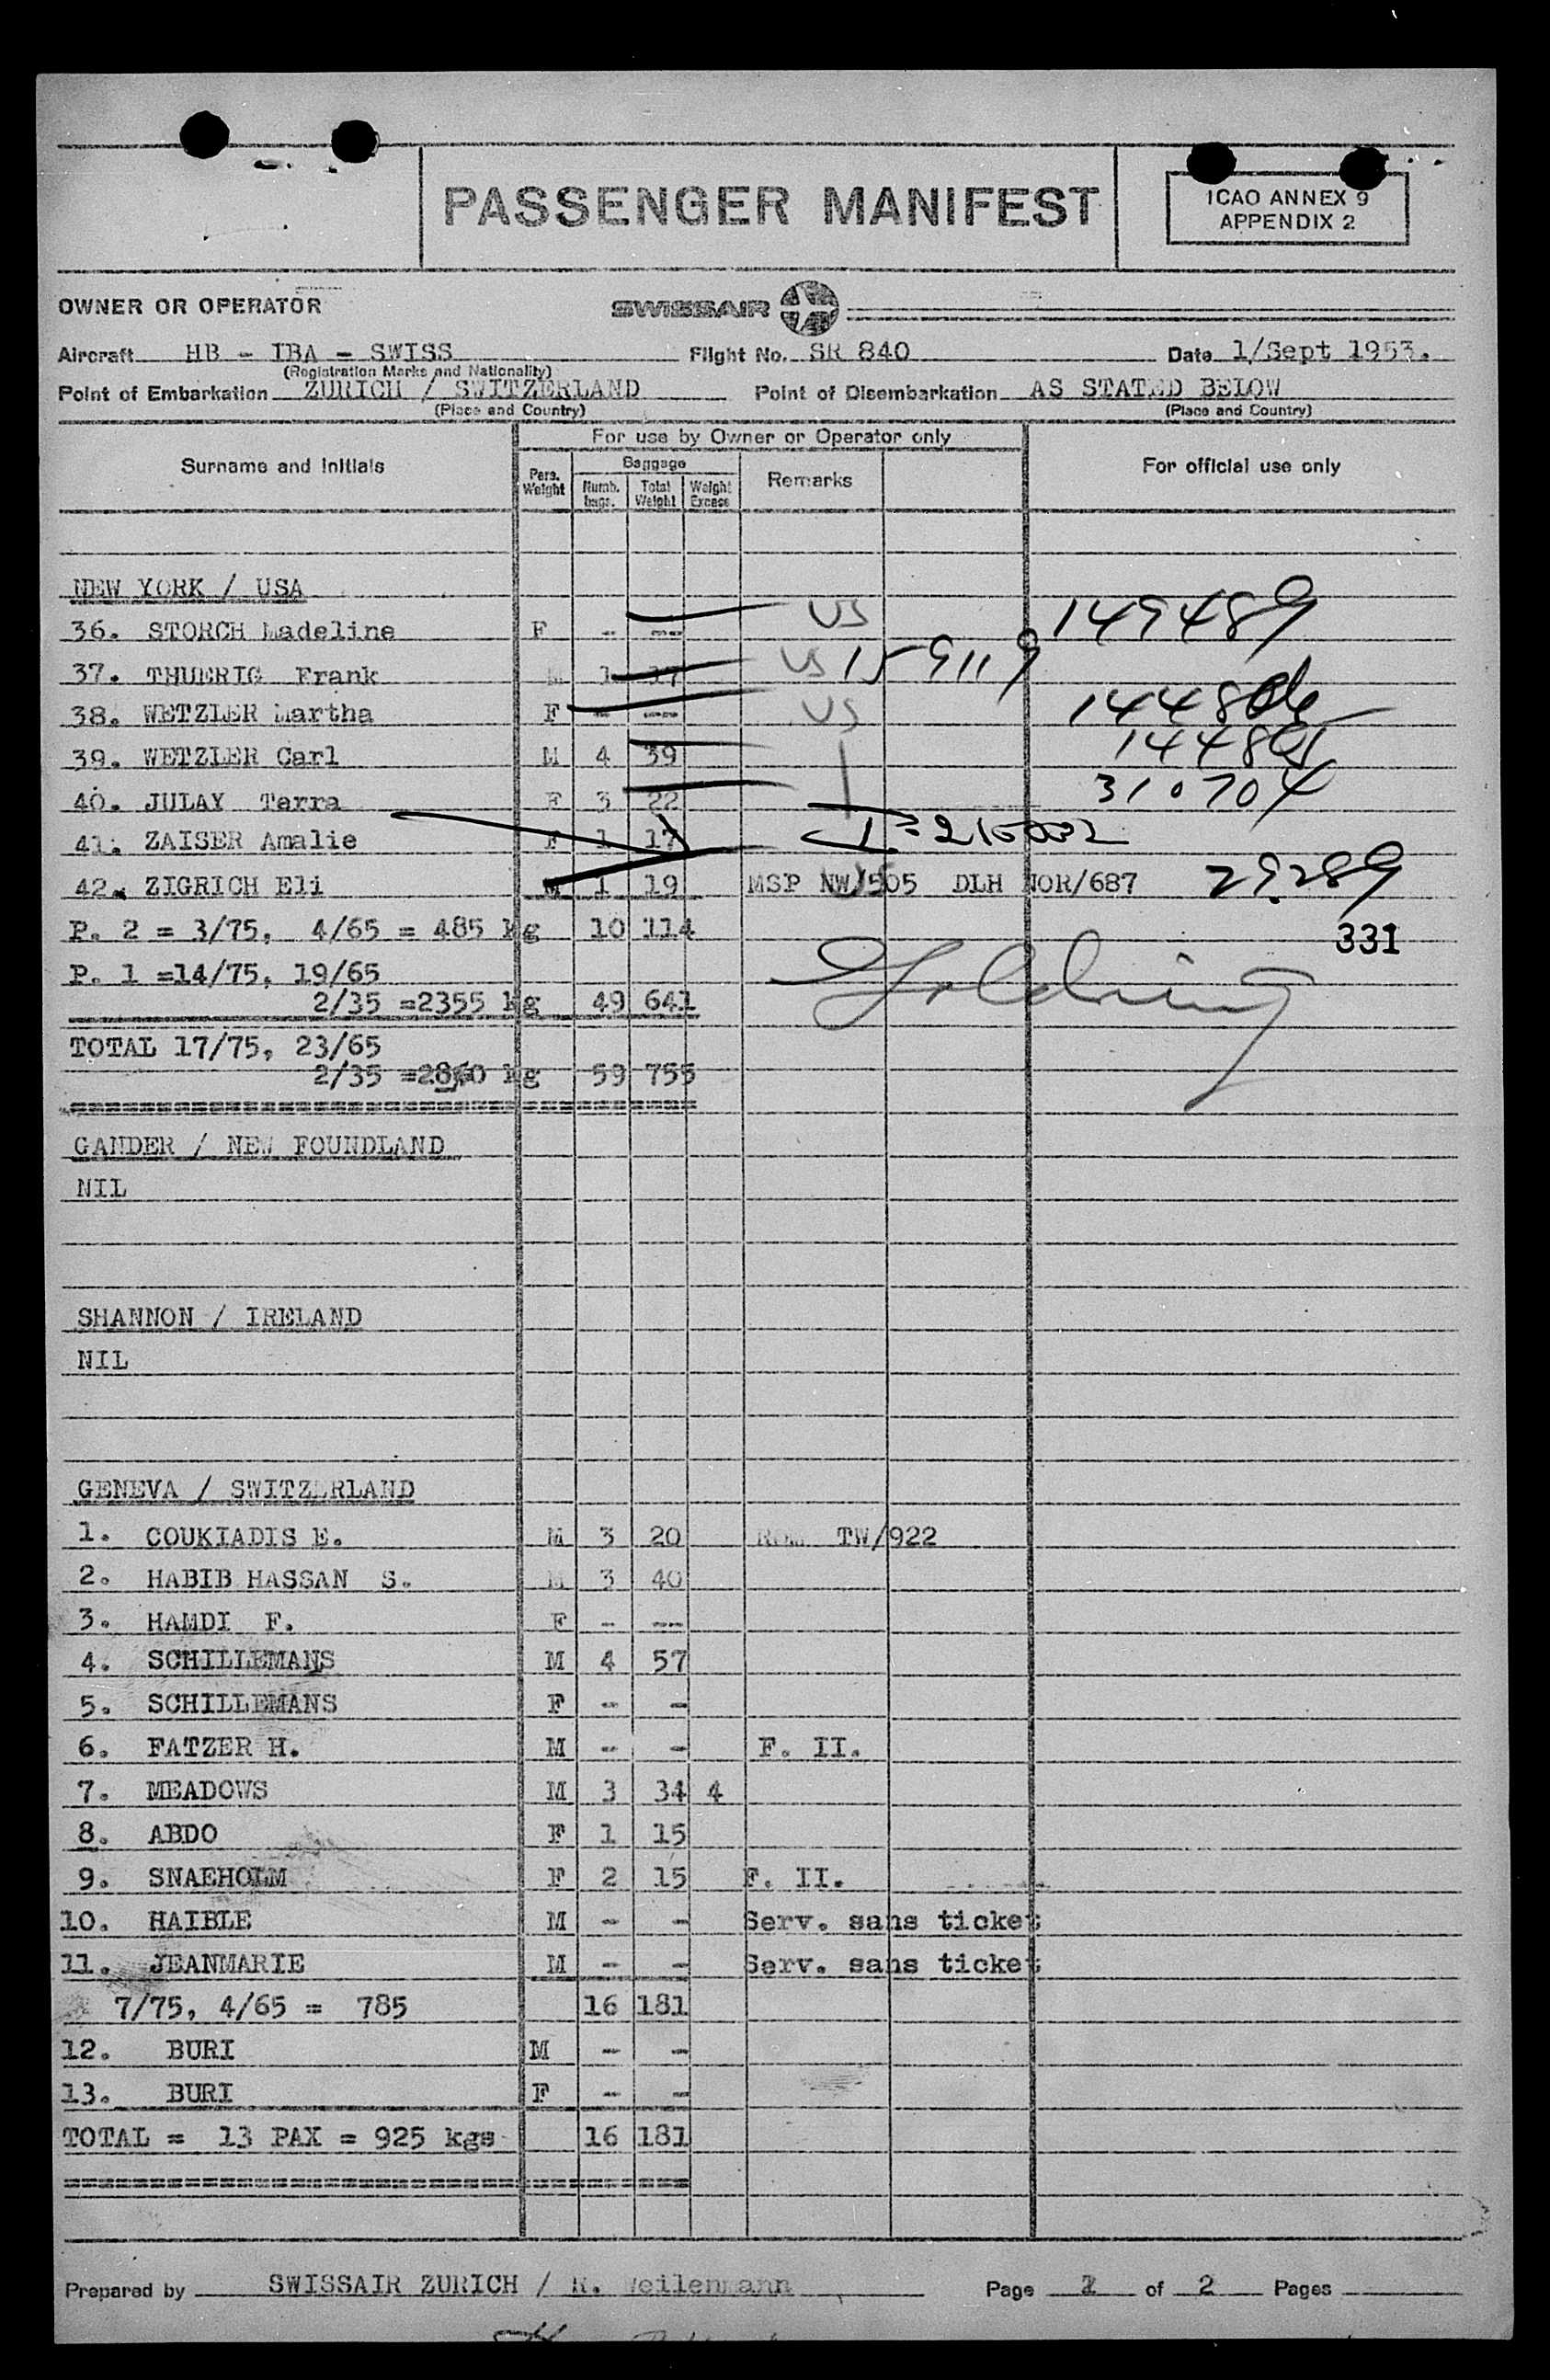 PASSENGER MANIFEST
ICAO ANNEX 9
APPENDIX 2
OWNER OR OPERATOR SWISSAIR
Aircraft HB - IBA - SWISS Flight No. SR 840 Date 1/Sept 1953.
(Registration Marks and Nationality)
Point of Embarkation ZURICH / SWITZERLAND Point of Disembarkation AS STATED BELOW
(Place and Country) (Place and Country)
For use by Owner or Operator only
Surname and Initials Pers. Weight Baggage Numb. bags. Total Weight Weight Excess Remarks For official use only
NEW YORK / USA
36. STORCH Madeline F - -- US 149489
37. THUERIG Frank M 1 17 US 159119
38. WETZLER Martha F - --- US
39. WETZLER Carl M 4 39
40. JULAY Terra F 3 22 310704
41. ZAISER Amalie F 1 17
42. ZIGRICH Eli M 1 19 MSP NW/505 DLH NOR/687 29289
P. 2 = 3/75, 4/65 = 485 kg 10 114
331
P. 1 =14/75, 19/65
2/35 =2355 kg 49 641
TOTAL 17/75, 23/65
2/35 = kg 59 755
GANDER / NEW FOUNDLAND
NIL
SHANNON / IRELAND
NIL
GENEVA / SWITZERLAND
1. COUKIADIS E. M 3 20 ROM TW/922
2. HABIB HASSAN S. M 3 40
3. HAMDI F. F - ---
4. SCHILLEMANS M 4 57
5. SCHILLEMANS F - -
6. FATZER H. M - - F. II.
7. MEADOWS M 3 34 4
8. ABDO F 1 15
9. SNAEHOLM F 2 15 F. II.
10. HAIBLE M - - Serv. sans ticket
11. JEANMARIE M - - Serv. sans ticket
7/75, 4/65 = 785 16 181
12. BURI M - -
13. BURI F - -
TOTAL = 13 PAX = 925 kgs 16 181
Prepared by SWISSAIR ZURICH / Weilenmann Page of 2 Pages